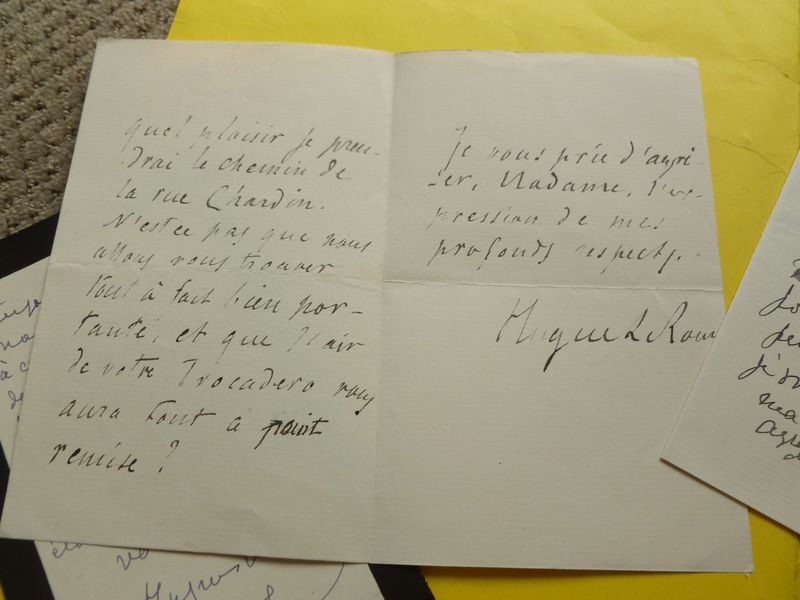 quel plaisir je pren-
drai le chemin de
la rue Chardin.
N'est ce pas que nous
allons vous trouver
tout à fait bien por-
tante, et que l'air
de votre Trocadero vous
aura tout à point
remise ?
Je vous prie d'agré-
er, Madame, l'ex-
pression de mes
profonds respects.
Hugues Le Roux